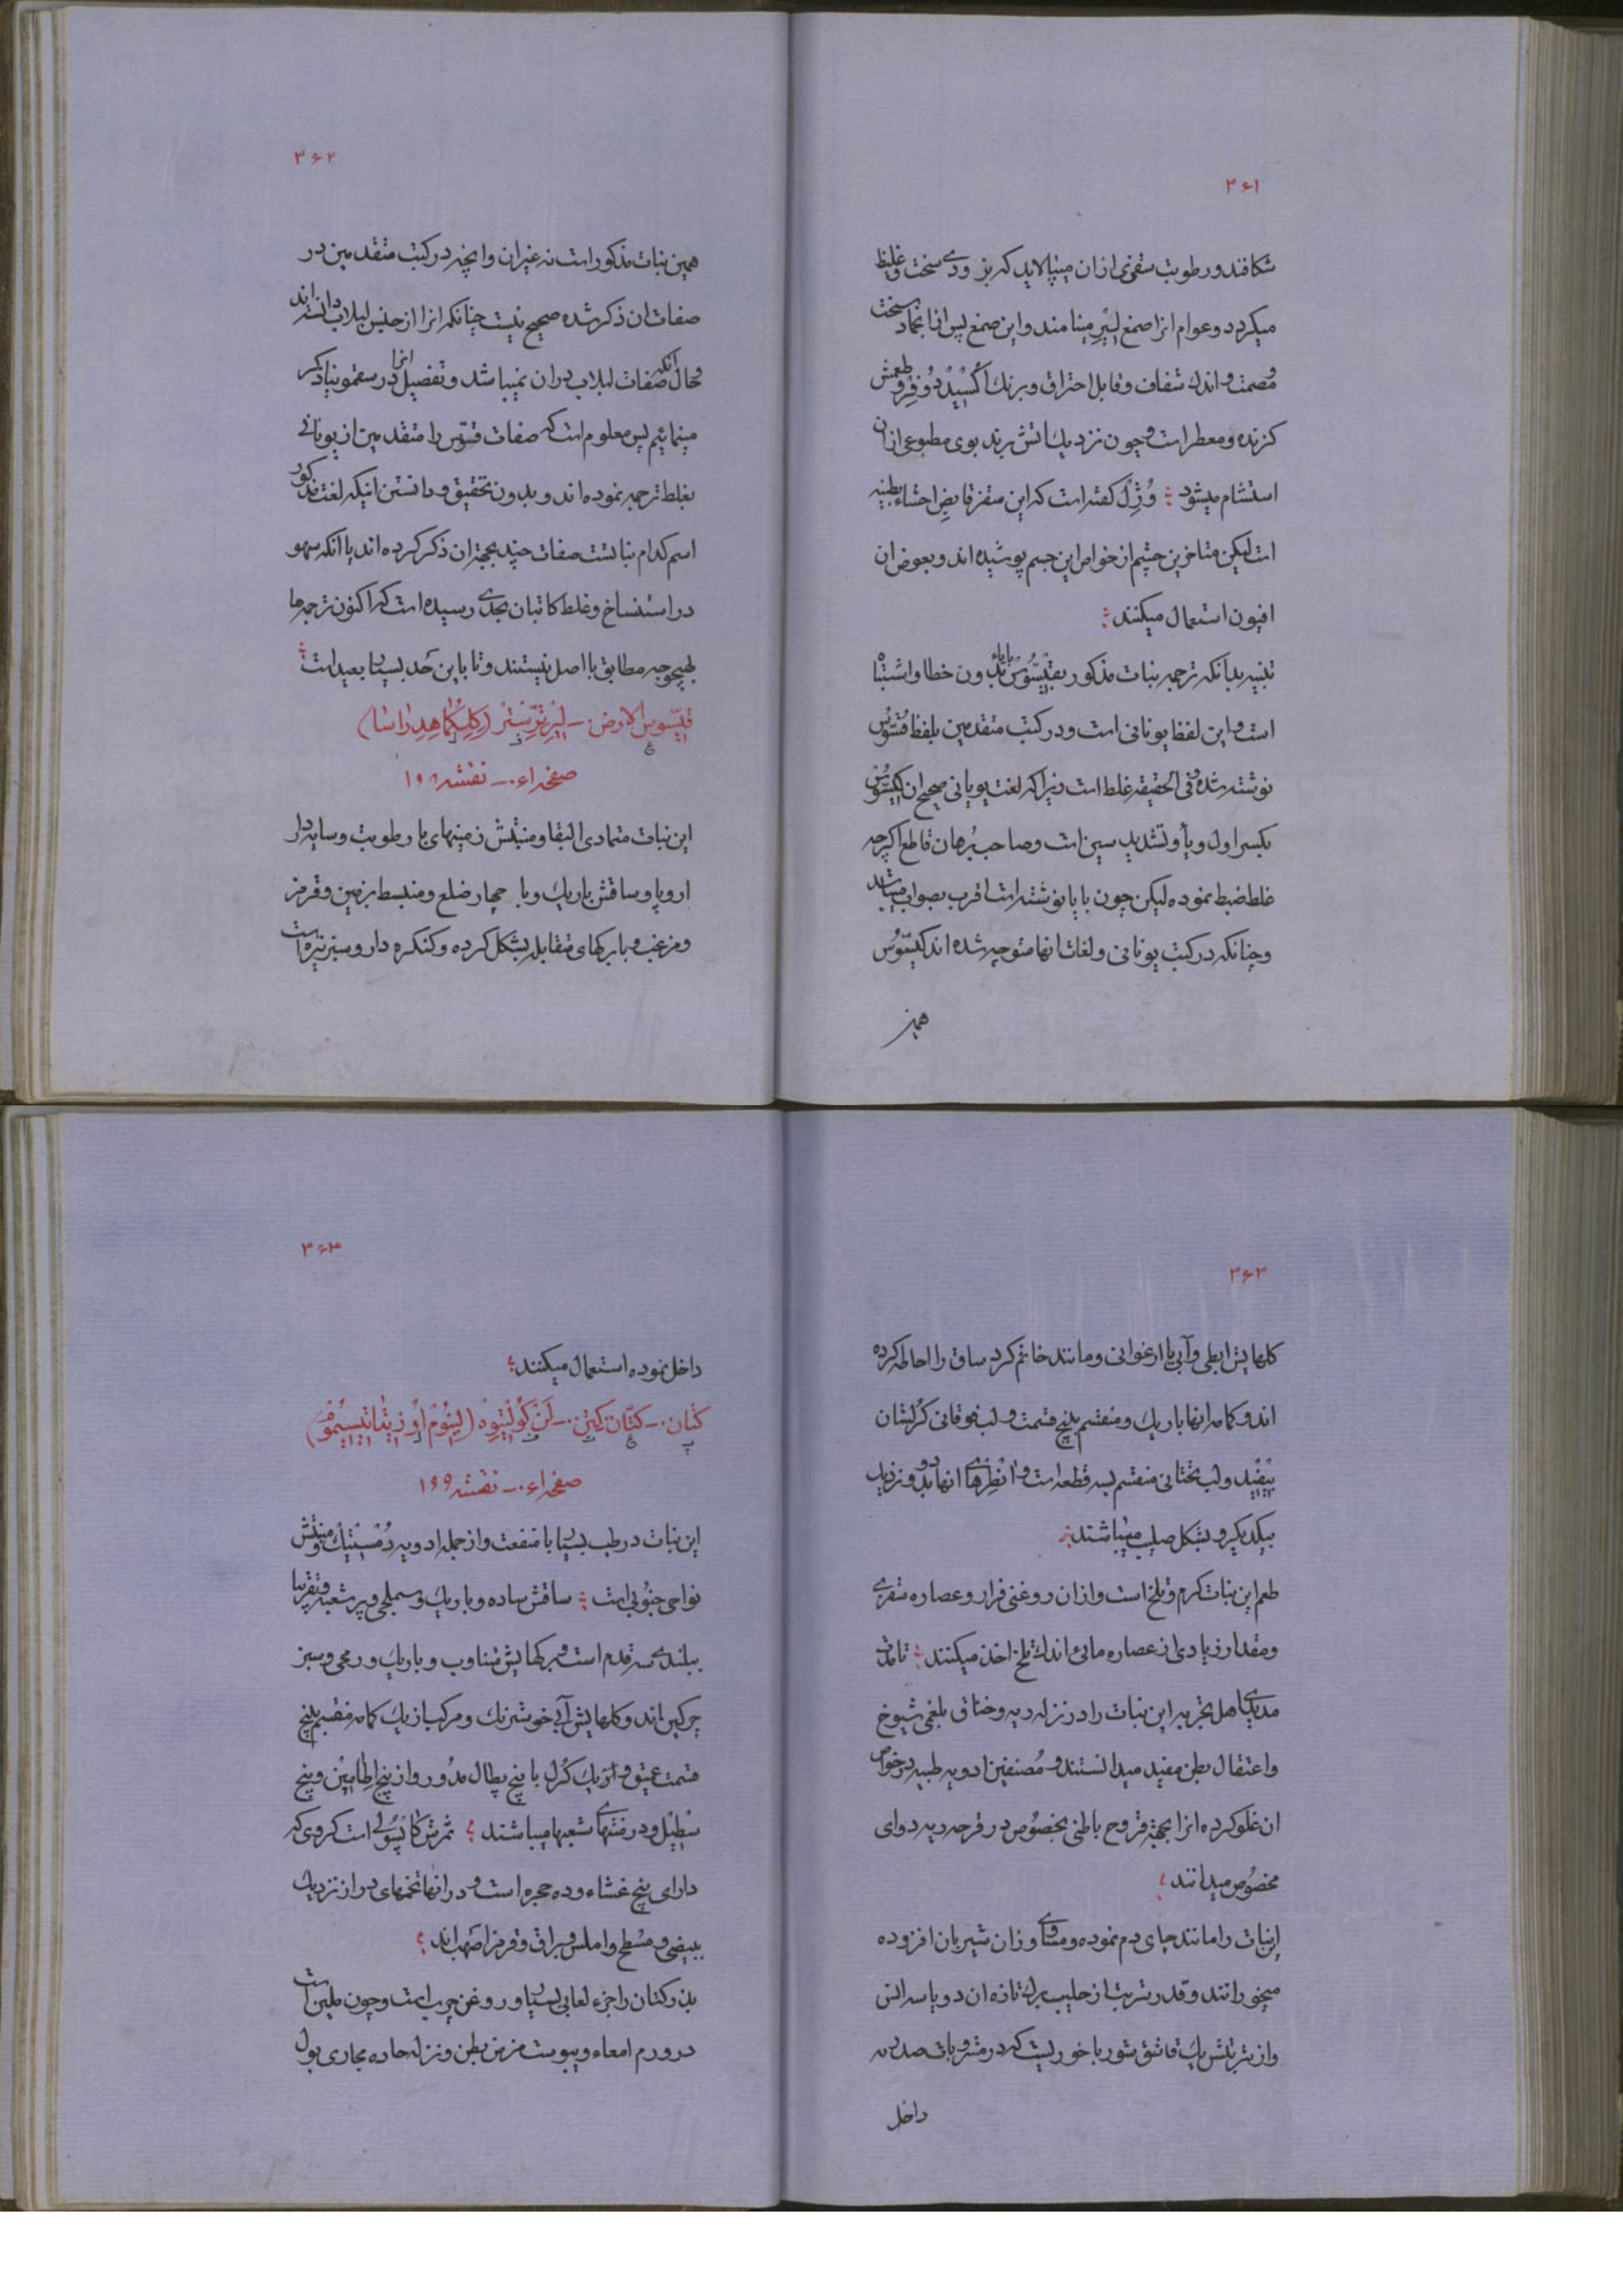 ۳۶۱
شکافند و رطوبت سقمی ازان میپالاید که بزودی سخت و غلیظ
میکردد و عوام انرا صمغ لیر مینامند و این صمغ پس از انجماد سخت
و مصمت و اندک شفاف و قابل احتراق و برنك اکسید دو فر و طعمش
کزنده و معطر است و چون نزدیك اتش برند بوی مطبوعی ازان
استشمام میشود ؛ وژل کفته است که این سقز قابض احشاء بطنیه
است لیکن متاخرین چشم از خواص این جسم پوشیده اند و بعوض ان
افیون استعمال میکنند ؛
تنبیه بدانکه ترجمه نبات مذکور بقیسوس با یاء بدون خطا و اشتباه
است و این لفظ یونانی است و در کتب متقدمین بلفظ قسوس
نوشته شده و فی الحقیقه غلط است زیرا که لغت یونانی صحیح ان کیسوس
بکسر اول و یا و تشدید سین است و صاحب برهان قاطع اکرچه
غلط ضبط نموده لیکن چون با یا نوشته است اقرب بصواب میباشد
و چنانکه در کتب یونانی و لغات انها متوجه شده اند کیسوس
همین
۳۶۲
همین نبات مذکور است نه غیران و انچه در کتب متقدمین در
صفات ان ذکر شده صحیح نیست چنانکه انرا از جنس لبلاب دانسته اند
و حال انکه صفات لبلاب دران نمیباشد و تفصیل انرا در سقمونیا ذکر
مینمائیم پس معلوم است که صفات قسوس را متقدمین از یونانی
بغلط ترجمه نموده اند و بدون تحقیق و دانستن اینکه لغت مذکور
اسم کدام نباتست صفات چند بجهة ان ذکر کرده اند یا انکه سهو
در استنساخ و غلط کاتبان بحدی رسیده است که اکنون ترجمه ما
بهیچوجه مطابق با اصل نیستند و تا باین حد بسیار بعید است ؛
قیسوس الارض ـ لیر ترستر (کلکما هدراسا)
صفحه ۶۱ ـ نقشه ۱۹۸
این نبات متمادی البقا و منبتش زمینهای با رطوبت و سایه دار
اروپا و ساقش باریك و با چهار ضلع و منبسط بزمین و قرمز
و مزغب و با برکهای متقابله بشکل کرده و کنکره دار و سبز تیره است
۳۶۳
کلهایش ابطی و آبی یا ارغوانی و مانند خاتم کرد ساق را احاطه کرده
اند و کاسه انها باریك و منقسم بپنج قسمت و لب فوقانی کرلشان
بیفید و لب تحتانی منقسم بسه قطعه است و انطرهای انها بدو و نزدیك
بیکدیکر و بشکل صلیب میباشند ؛
طعم این نبات کرم و تلخ است و ازان روغنی فرار و عصاره سقزی
و مقدار زیادی از عصاره مائی اندك تلخ اخذ میکنند ؛ تا مدت
مدیدی اهل تجربه این نبات را در نزله ریه و خناق بلغمی شیوخ
و اعتقال بطن مفید میدانستند و مصنفین ادویه طبیه در خواص
ان غلو کرده انرا بجهة قروح باطنی بخصوص در قرحه ریه دوای
مخصوص میدانند ؛
این نبات را مانند چای دم نموده و مساوی وزان شیر بان افزوده
میخورانند و قدر شربت از حلیب برك تازه ان دو یا سه انس
و از شربتش یك قاشق شوربا خوریست که در مشروبات صدریه
داخل
۳۶۴
داخل نموده استعمال میکنند ؛
کتان ـ کتان کتن ـ لن کولتیوه (لینوم اوزیتاتیسیموم)
صفحه ۶۱ ـ نقشه ۱۹۹
این نبات در طب بسیار با منفعت و از جمله ادویه دمستیك و منبتش
نواحی جنوبی است ؛ ساقش ساده و باریك و سهملجی و پرشعبه و تقریبا
ببلندی سه قدم است و برکهایش متناوب و باریك و رمحی و سبز
چرکین اند و کلهایش آبی خوشرنك و مرکب از یك کاسه منقسم بپنج
قسمت عمیق و از یك کرل با پنج پطال مدور و از پنج اطامین و پنج
سطیل و در منتهای شعبها میباشند ؛ ثمرش کاپسولی است کروی که
دارای پنج غشاء و ده حجره است و در انها تخمهای دراز نزدیك
ببیضی و مسطح و املس و براق و قرمز اصهب اند ؛
بذر کتان را جزء لعابی بسیار و روغن چرب است و چون ملین است
در ورم امعاء و یبوست مزمن بطن و نزله حاده مجاری بول